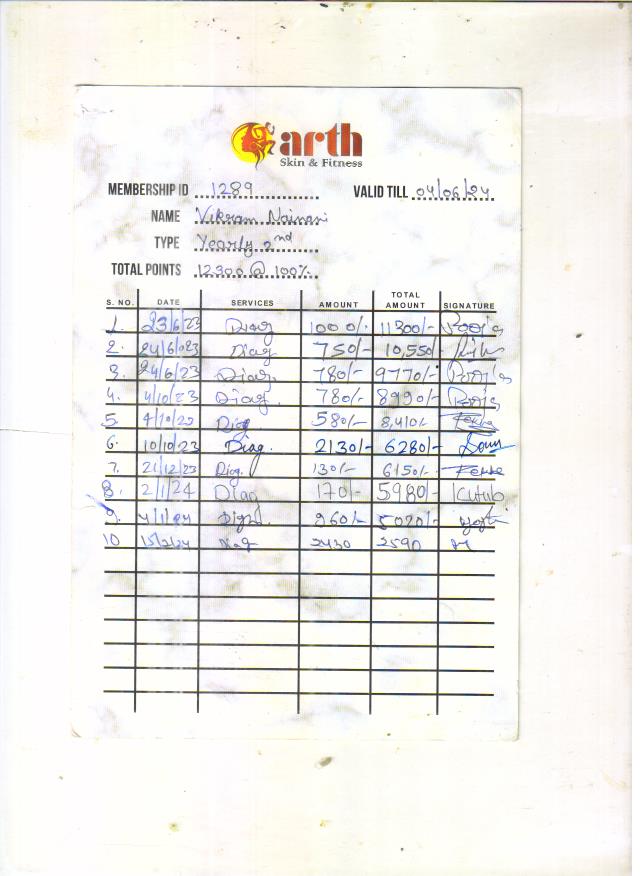 arth
Skin & Fitness
MEMBERSHIP ID 1289 VALID TILL 04/06/24
NAME Vikram Nainani
TYPE Yearly 2nd
TOTAL POINTS 12300 @ 100%
S. NO. DATE SERVICES AMOUNT TOTAL AMOUNT SIGNATURE
1. 23/6/23 Diag 1000/- 11300/- Pooja
2. 24/6/023 Diag 750/- 10,550/-
3. 24/6/23 Diag. 780/- 9770/- Pooja
4. 4/10/23 Diag. 780/- 8990/- Pooja
5. 4/10/23 Diag 580/- 8,410/-
6. 10/10/23 Diag. 2130/- 6280/-
7. 21/12/23 Diag. 130/- 6150/-
8. 2/1/24 Diag 170/- 5980/- Kutub
9. 4/1/24 960/- 5020/- Jyoti
10 15/2/24 Diag 2430 2590